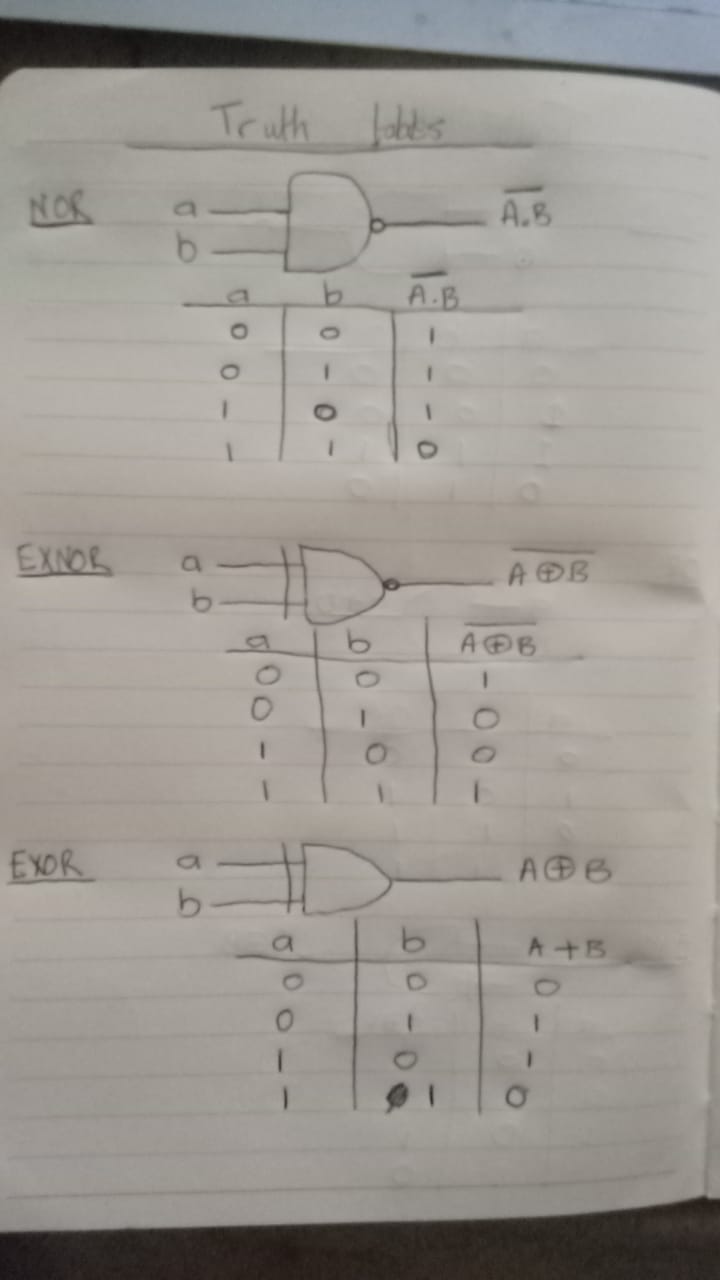 Truth tables
NOR a A̅.B
b
a b A̅.B
0 0 1
0 1 1
1 0 1
1 1 0
EXNOR a A̅ ̅⊕̅ ̅B̅
b
a b A̅ ̅⊕̅ ̅B̅
0 0 1
0 1 0
1 0 0
1 1 1
EXOR a A⊕B
b
a b A+B
0 0 0
0 1 1
1 0 1
1 1 0